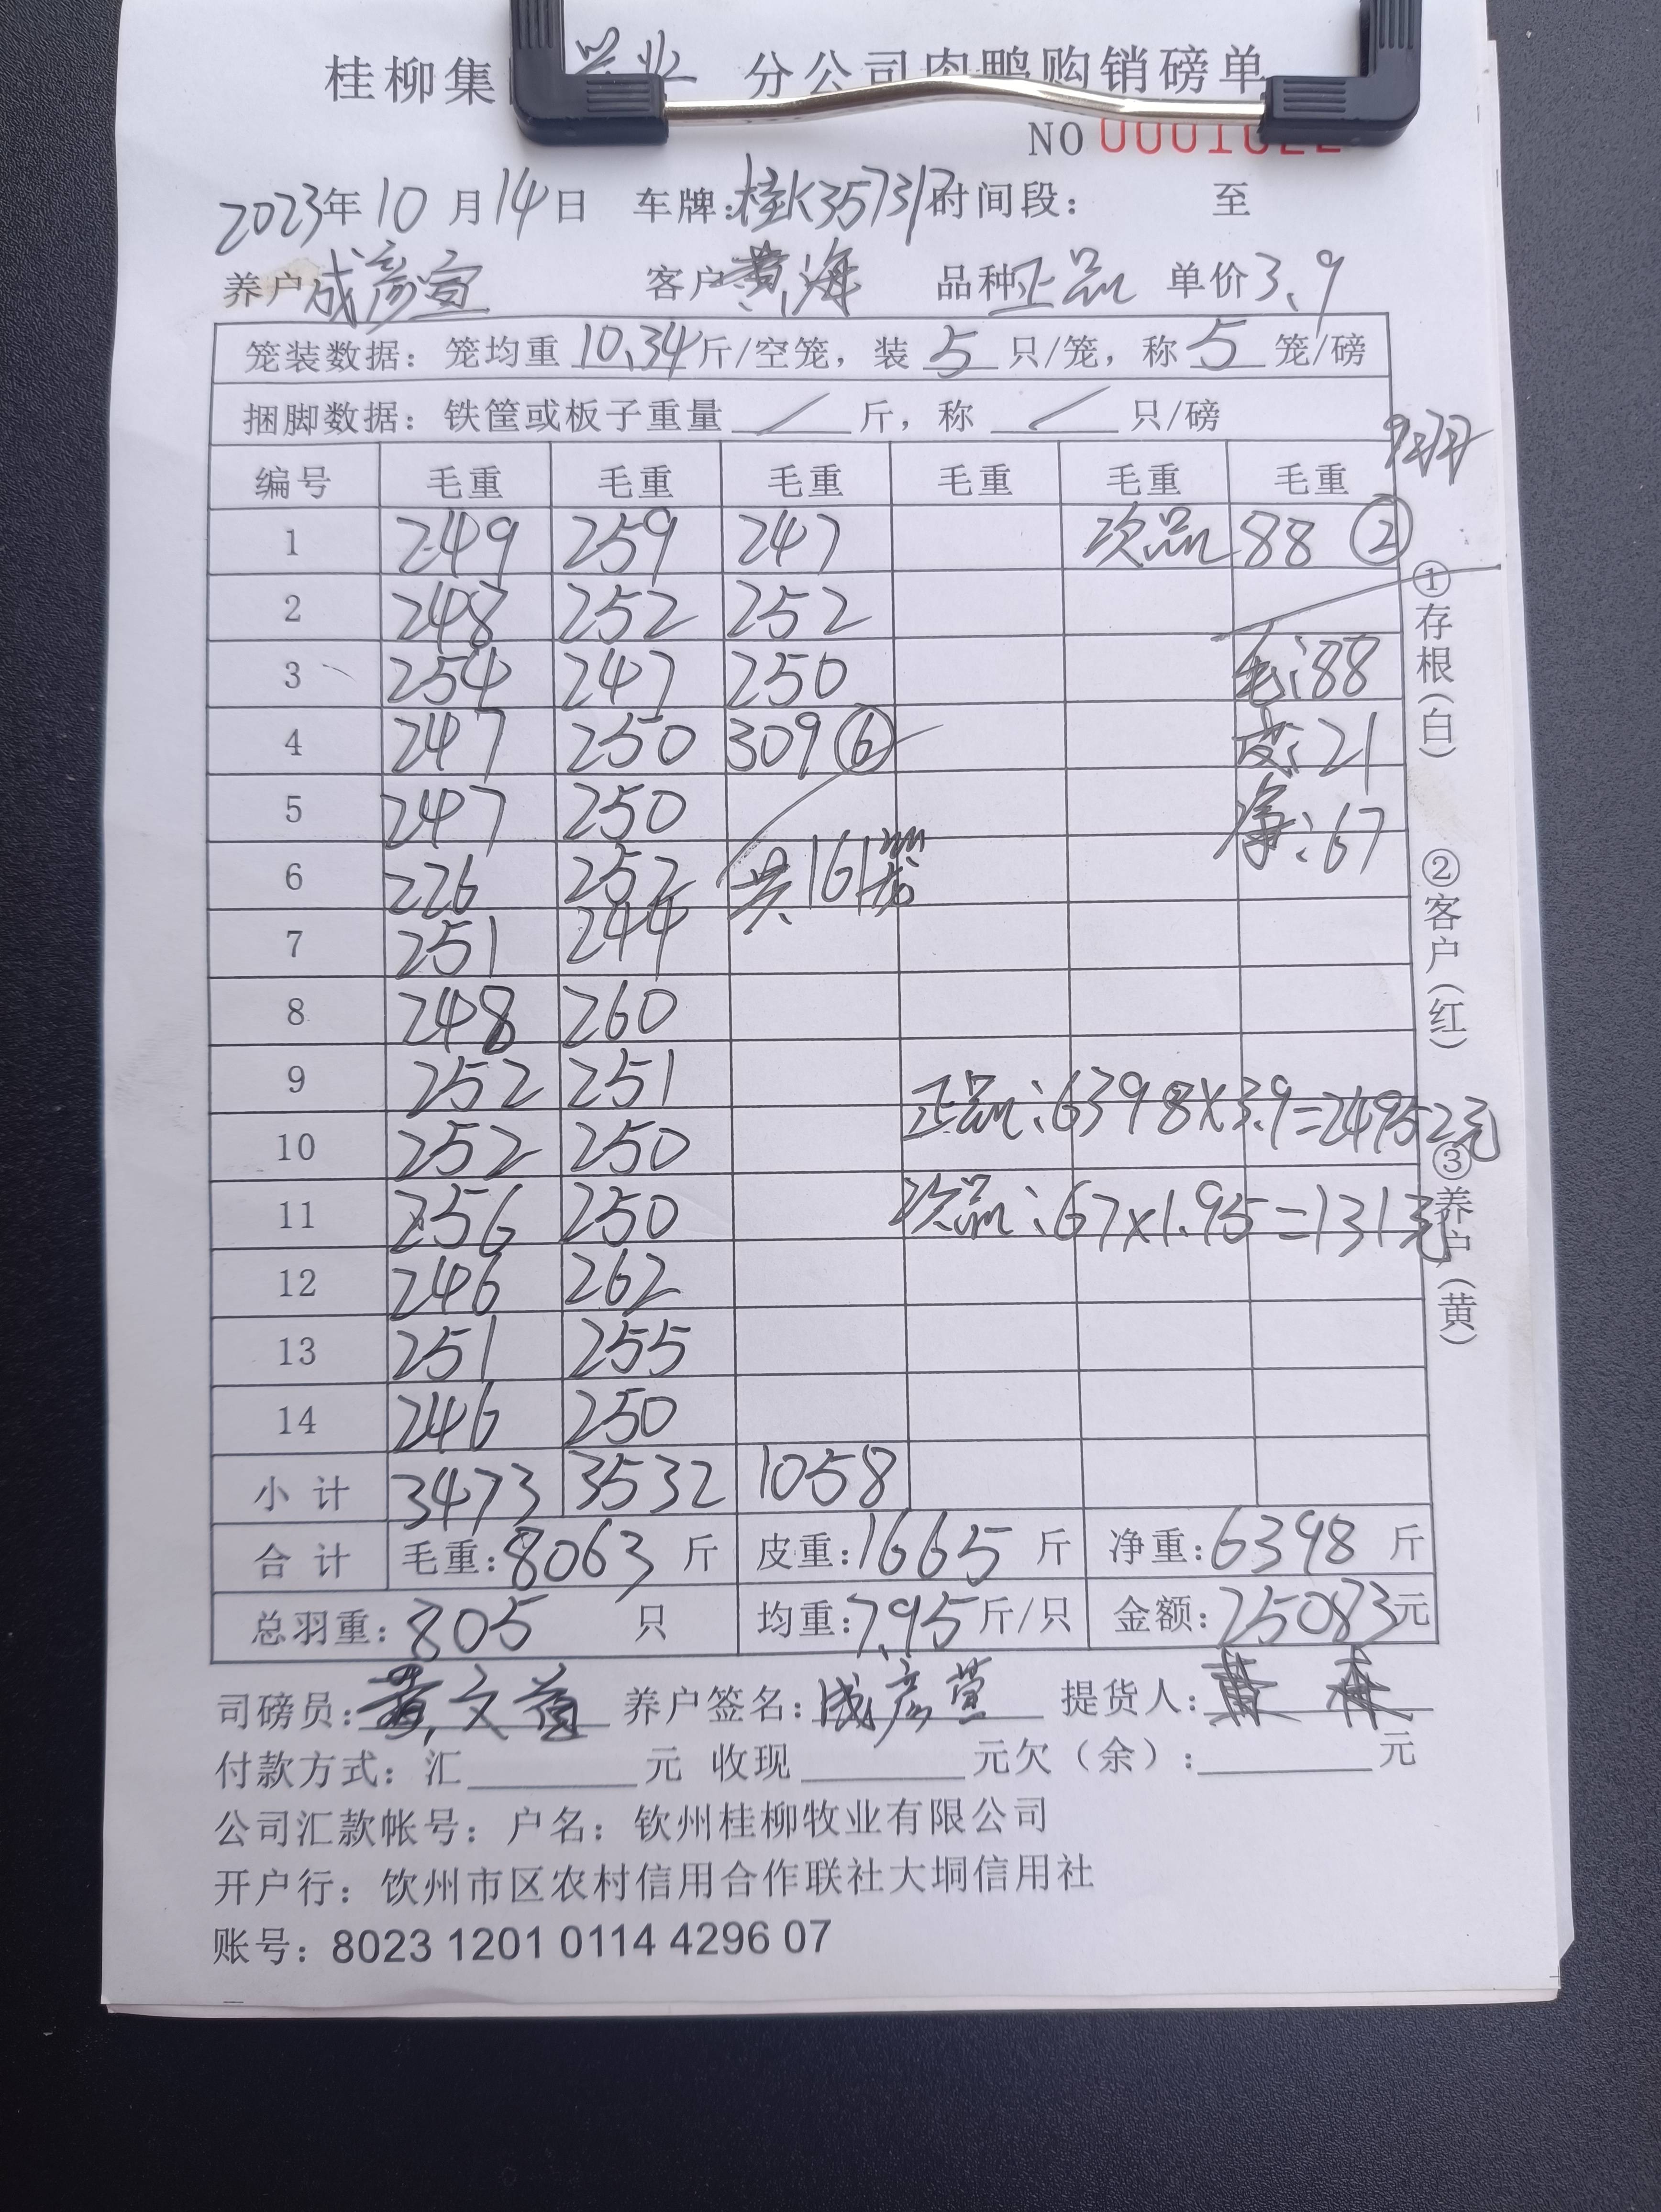 桂柳集 兴业 分公司肉鸭购销磅单
NO 0001022
2023年10月14日 车牌:桂K35731 时间段: 至
养户 成彦宣 客户 黄海 品种 正品 单价 3.9
笼装数据: 笼均重 10.34 斤/空笼, 装 5 只/笼, 称 5 笼/磅
捆脚数据: 铁筐或板子重量 / 斤, 称 / 只/磅
编号 毛重 毛重 毛重 毛重 毛重 毛重
1 249 259 247 次品 88 ②
2 248 252 252
3 254 247 250 毛:88
4 247 250 309 ⑥ 皮:21
5 247 250 净:67
6 226 252 共161笼
7 251 244
8 248 260
9 252 251 正品:6398×3.9=24952元
10 252 250
11 256 250 次品:67×1.95=131元
12 246 262
13 251 255
14 246 250
小计 3473 3532 1058
合计 毛重:8063斤 皮重:1665斤 净重:6398斤
总羽重:805只 均重:7.95斤/只 金额:25083元
司磅员: 黄文 养户签名:成彦萱 提货人:黄
付款方式: 汇 元 收现 元欠(余): 元
公司汇款帐号: 户名: 钦州桂柳牧业有限公司
开户行: 钦州市区农村信用合作联社大垌信用社
账号: 8023 1201 0114 4296 07
①存根(白)
②客户(红)
③养户(黄)